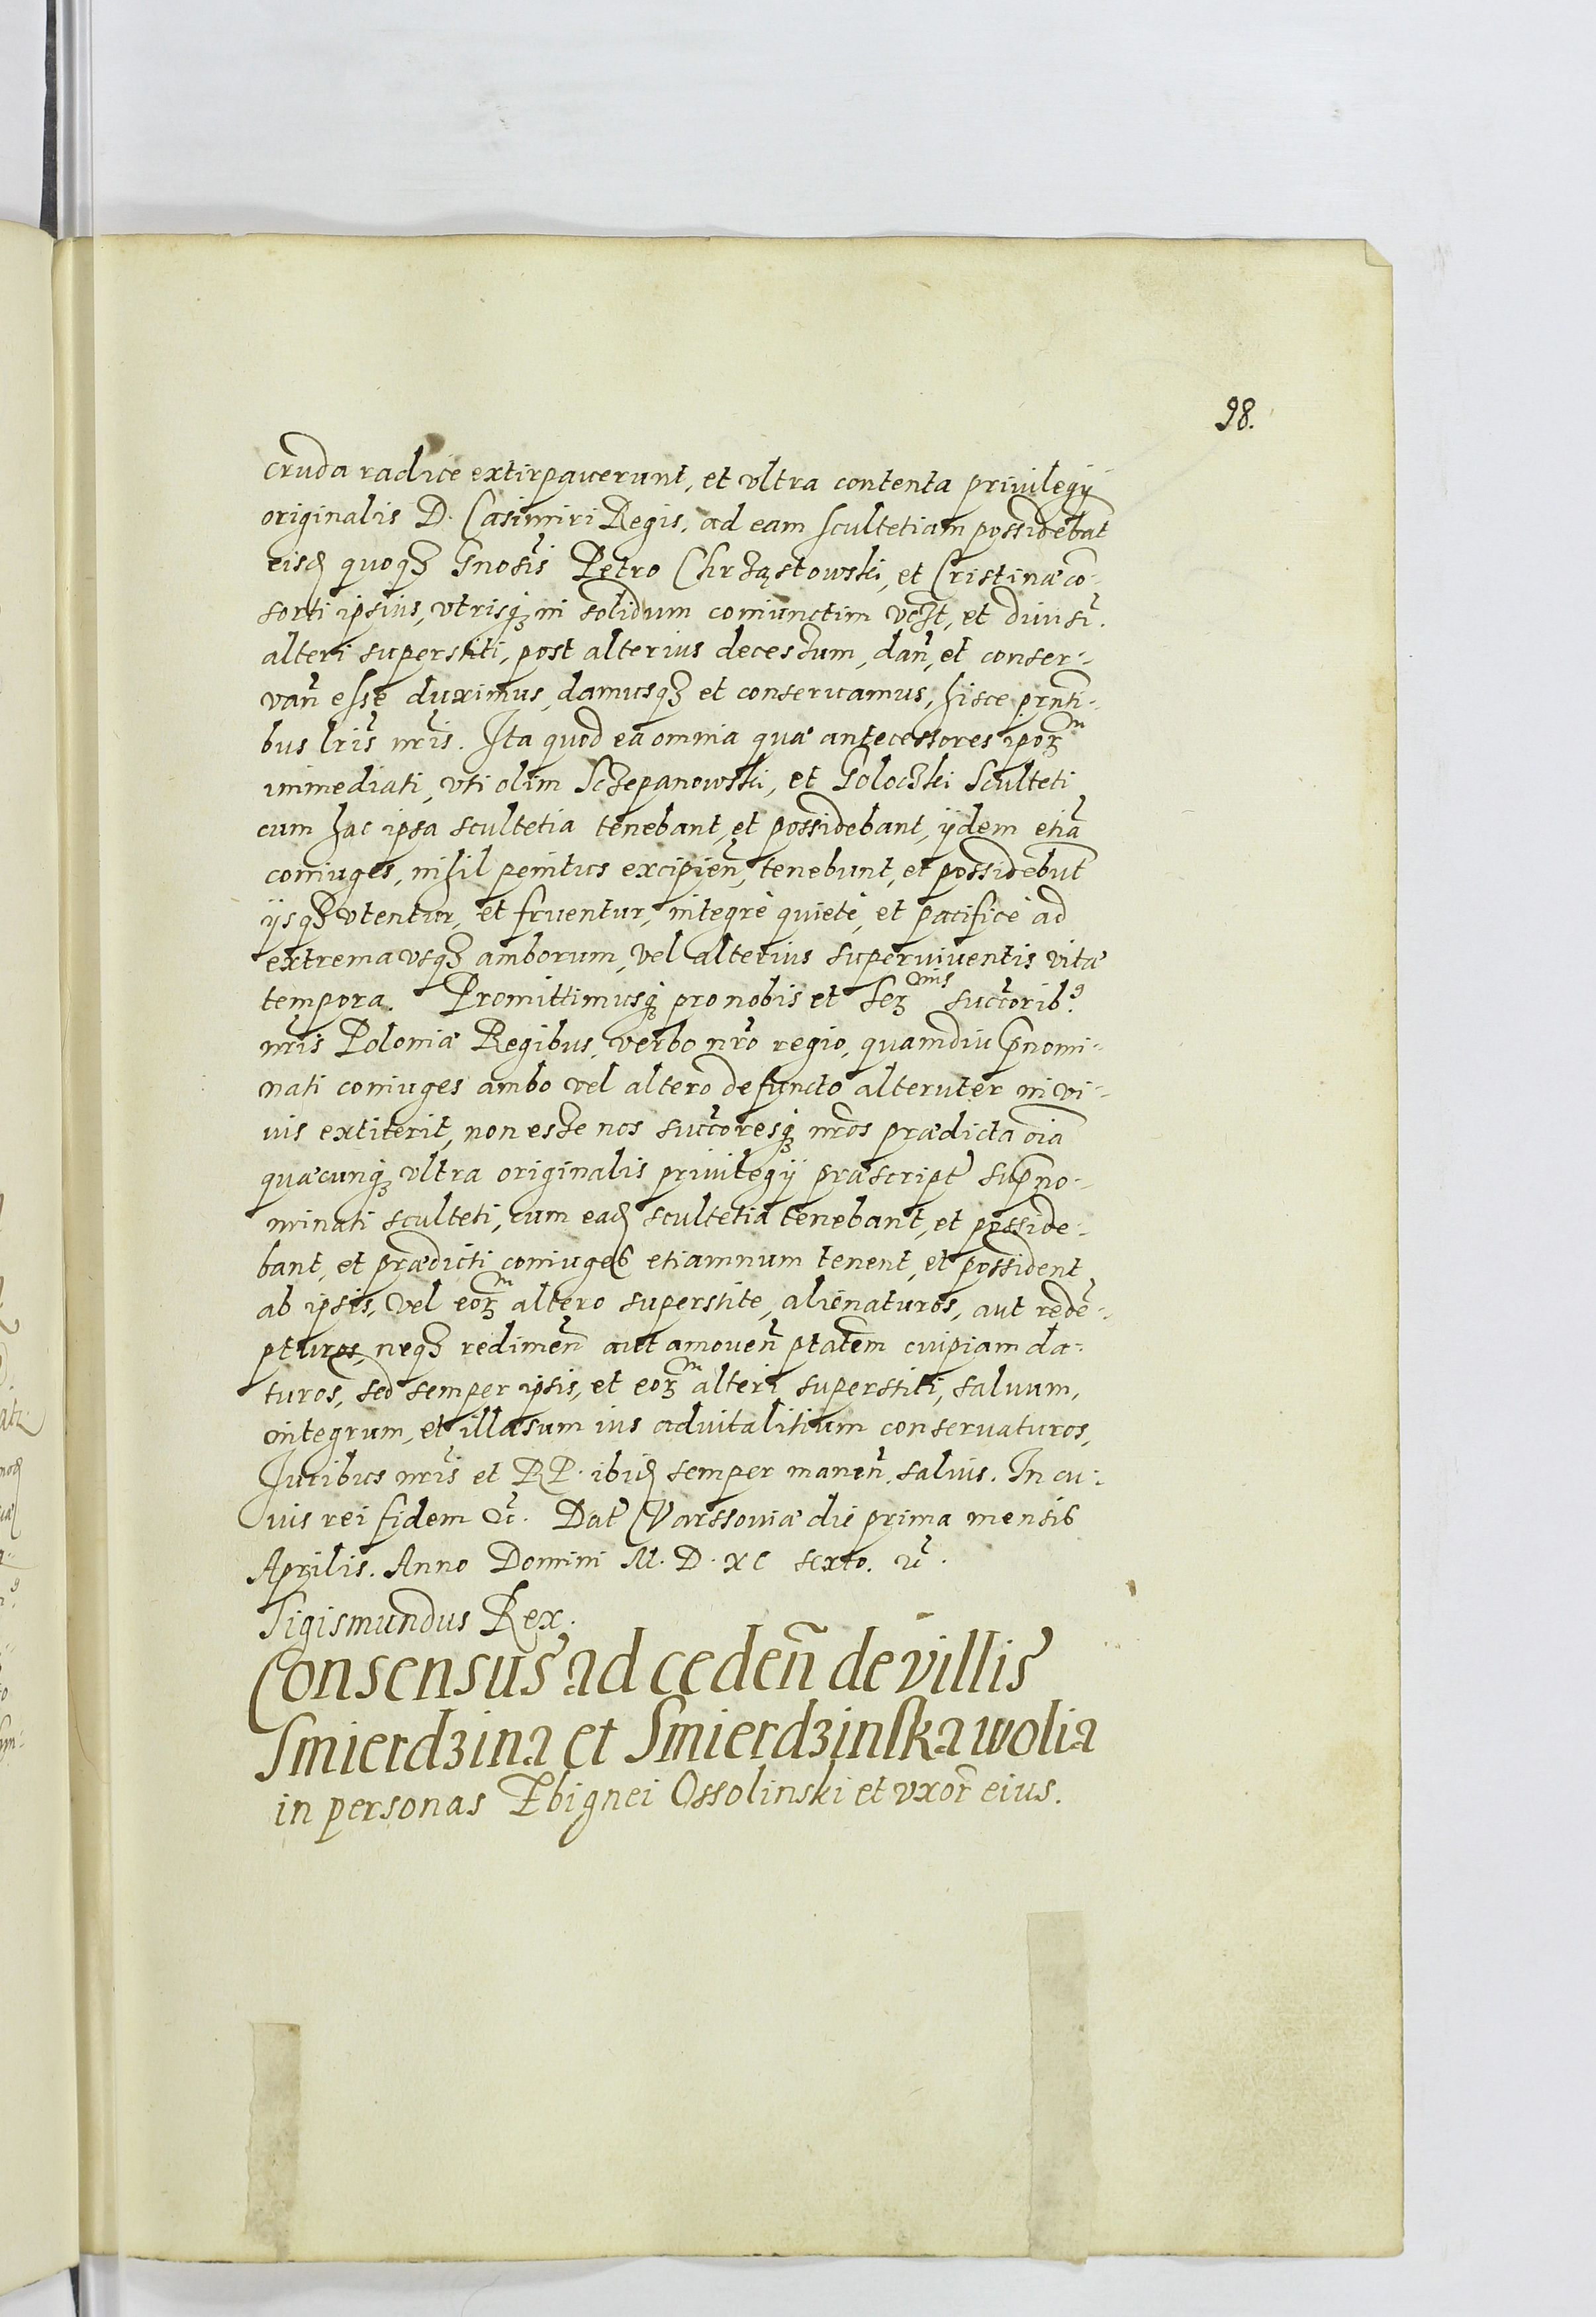 98.
cruda radice extirpauerunt, et vltra contenta priuilegÿ
originalis D. Casimiri Regis, ad eam scultetiam possidebāt
eisd quoq3 Gnosis Petro Chrząstowski, et Cristinæ cō-
sorti ipsius, vtrisq3 in solidum coniunctim et diuisi.
alteri superstiti, post alterius decessum, dañ, et conser-
vañ esse duximus, damusq3 et conseruamus, hisce prnti-
bus lris nris. Ita quod ea omnia quæ antecessores ipor3m
immediati, vti olim Sczepanowski, et Goloczki Sculteti
cum hac ipsa scultetia tenebant, et possidebant, ÿdem etiā
coniuges, nihil penitus excipieñ, tenebunt, et possidebūt
ÿsq3 vtentur, et fruentur, integrè quietè, et pacificè ad
extrema vsq3 amborum, vel alterius superuiuentis vitæ
tempora. Promittimusq3 pro nobis et Ser3mis succorib9
nris Poloniæ Regibus, verbo nro regio, quamdiu p̄nomi-
nati coniuges ambo vel altero defuncto alteruter in vi-
uis extiterit, non esse nos succoresq3 nros prædicta oīa
quæcunq3 vltra originalis priuilegÿ præscript sup̄no-
minati sculteti, cum ead scultetia tenebant, et posside-
bant, et prædicti coniuges etiamnum tenent, et possident
ab ipsis, vel eor3m altero superstite, alienaturos, aut redē-
pturos, neq3 redimeñ aut amoueñ ptatem cuipiam da-
turos, sed semper ipsis, et eor3m alteri superstiti, saluum,
integrum, et illæsum ius aduitalitium conseruaturos,
Iuribus nris et RP. ibid semper maneñ. saluis. In cu-
ius rei fidem &c. Dat Varssouiæ die prima mensis
Aprilis. Anno Domini M. D. XC sexto.
Sigismundus Rex.
Consensus ad cedeñ de villis
Smierdzina et Smierdzinska wolia
in personas Zbignei Ossolinski et vxor eius.